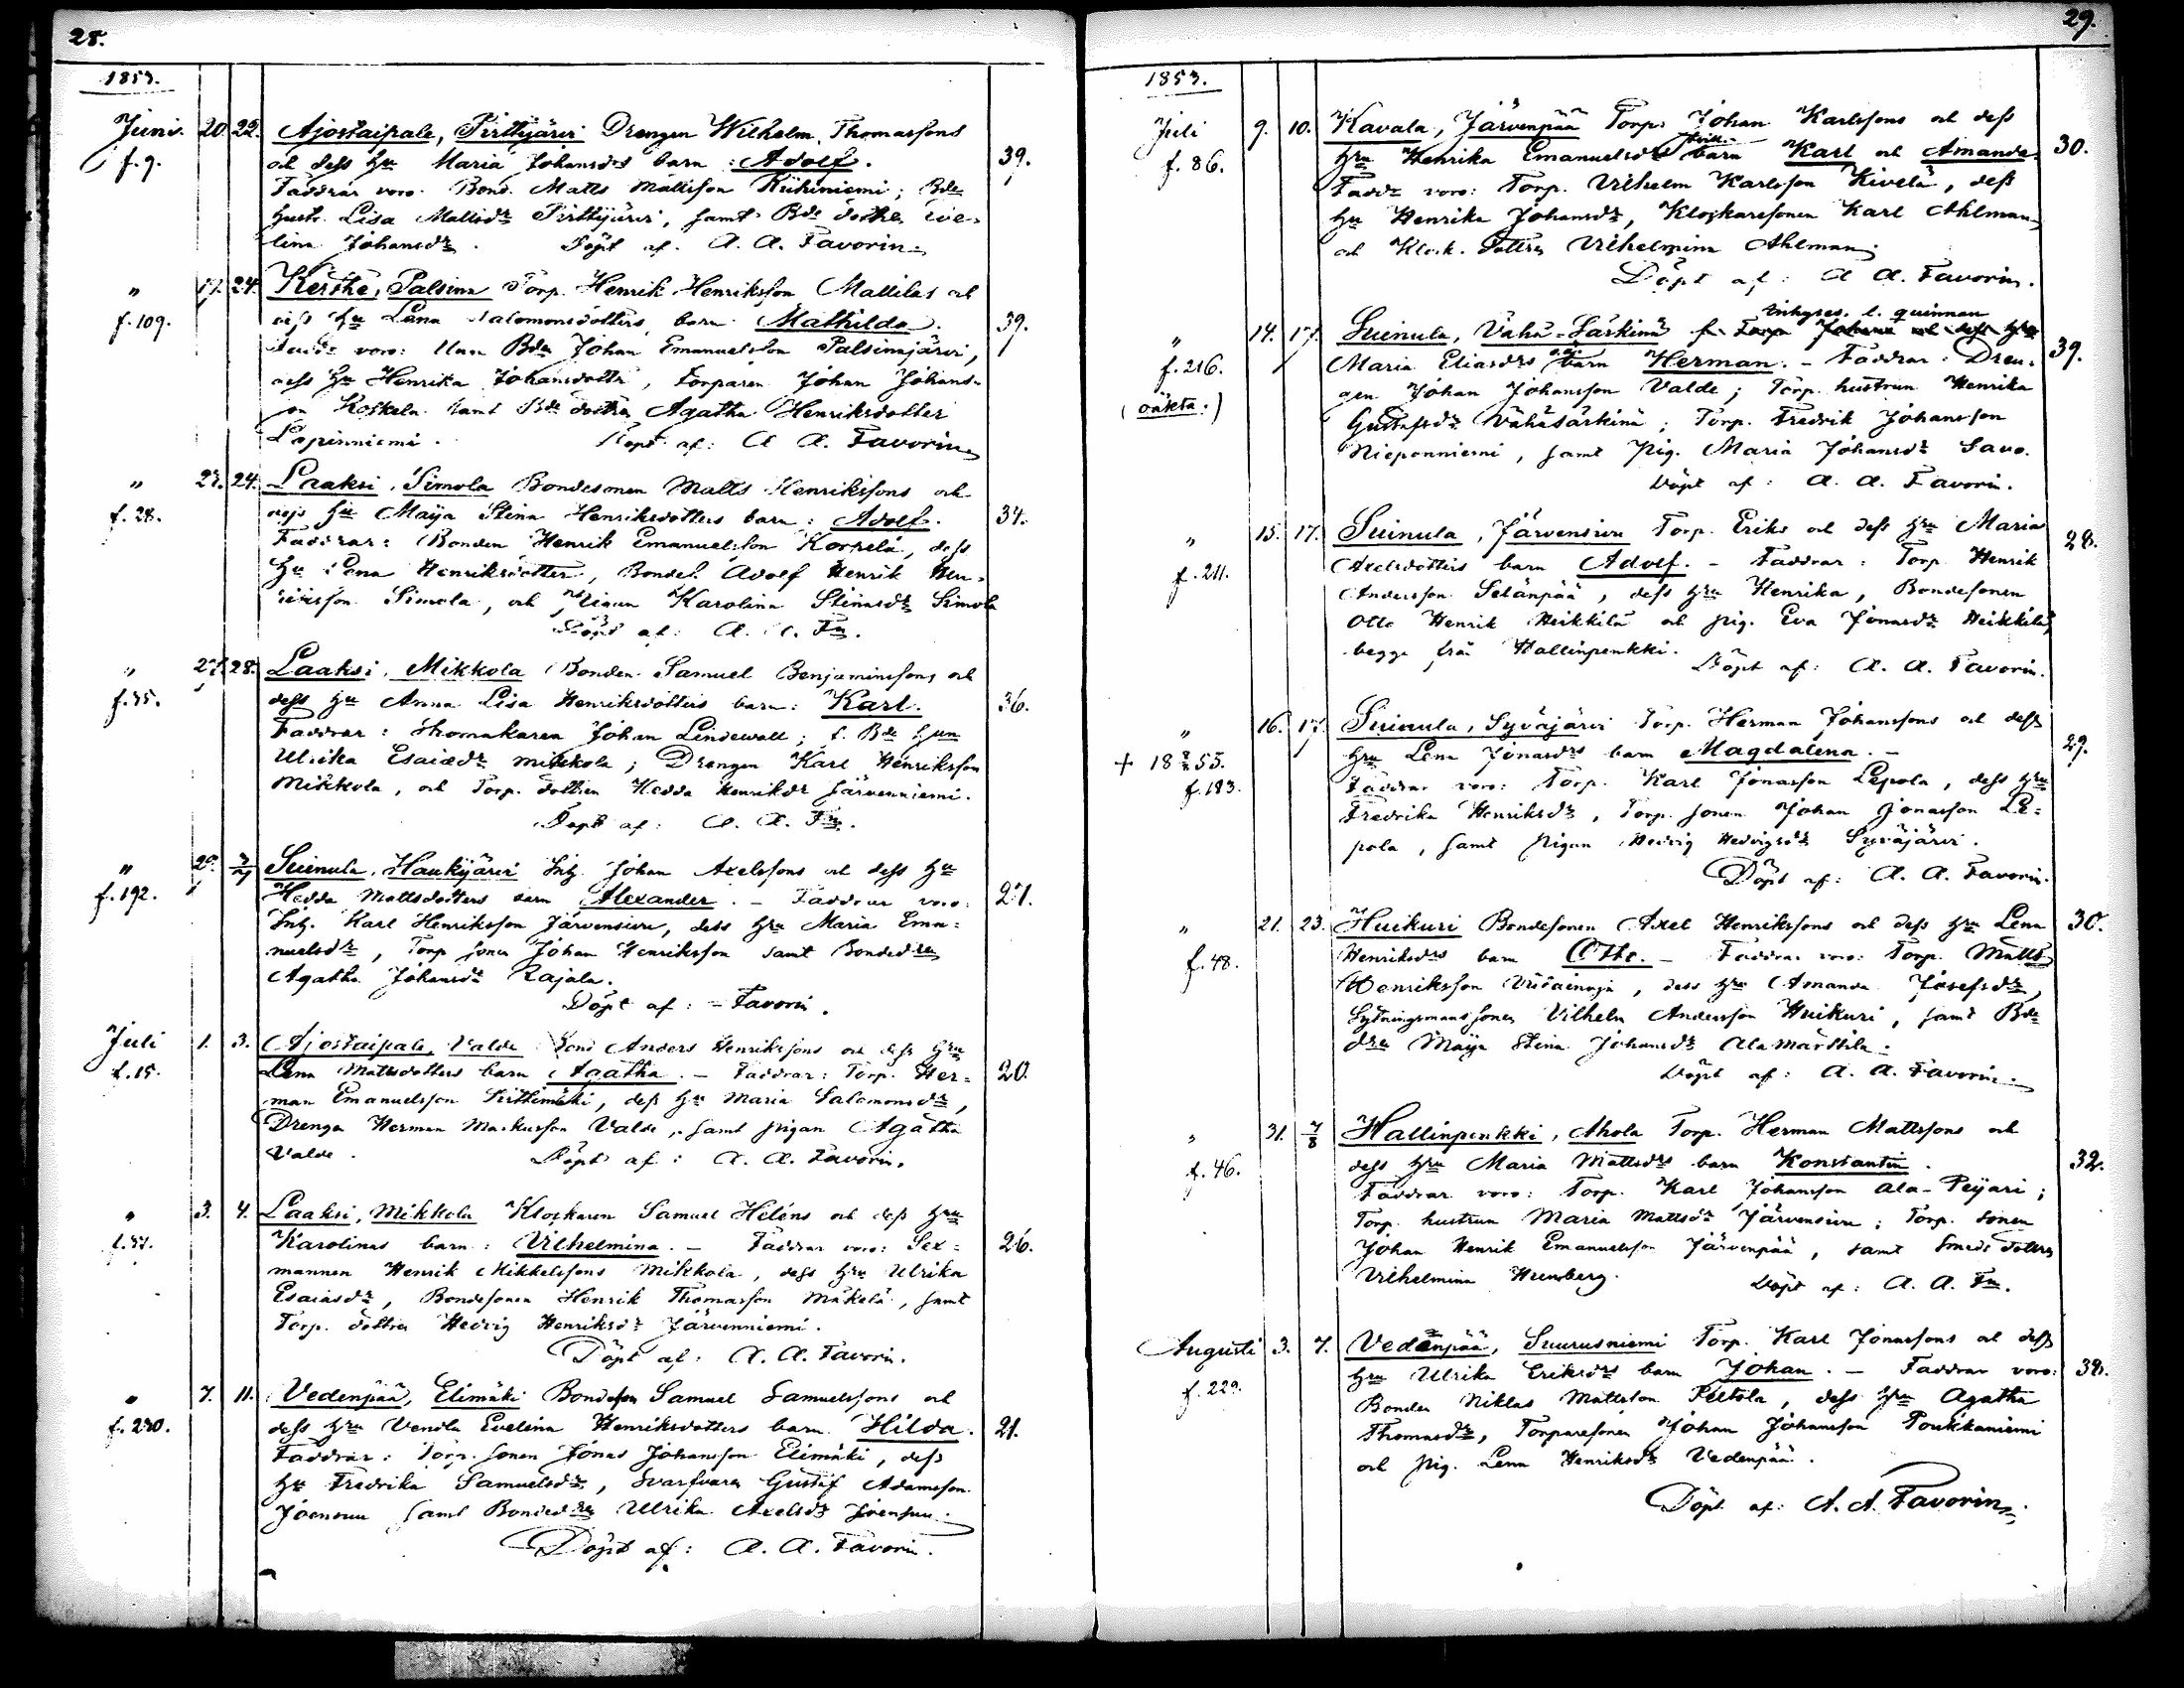 28.
1853.
Juni. 20. 22. Ajostaipale, Pirttijärvi Drengen Wilhelm Thomassons
f. 9. och dess hu Maria Johansdrs barn: Adolf. 39.
Faddrar voro. Bond. Matts Mattsson Riihiniemi; Bde
hustr. Lisa Mattsdr Pirttijärvi, samt Bde dottr. Eve-
lina Johansdr. Döpt af. A. A. Favorin.
" 17. 24. Kerttu, Palsina Torp. Henrik Henriksson Mattilas och
f. 109. dess hu Lena Salomonsdotters barn Mathilda. 39.
Faddr voro: Unn Bdn Johan Emanuelsson Palsinajärvi,
dess hu Henrika Johansdottr, Torparen Johan Johans-
on Koskela samt Bde dottren Agatha Henriksdotter
Lapinniemi. Döpt af: A. A. Favorin
" 23. 24. Laaksi, Simola Bondesonen Matts Henrikssons och
f. 28. dess hu Maija Stina Henriksdotters barn: Adolf. 34.
Faddrar: Bonden Henrik Emanuelsson Korpela, dess
hu Lena Henriksdotter, Bondes. Adolf Henrik Hen-
riksson Simola, och Pigan Karolina Stinasdr Simola
Döpt af: A. A. Fn.
" 27. 28. Laaksi, Mikkola Bonden Samuel Benjaminssons och
f. 35. dess hu Anna Lisa Henriksdotters barn: Karl. 36.
Faddrar: Skomakaren Johan Lindewall; f. Bde hun
Ulrika Esaiædr Mikkola; Drengen Karl Henriksson
Mikkola, och Torp. dottren Hedda Henriksdr Järvenniemi.
Döpt af: A. A. Fn.
" 29. 3/7 Suinula, Haukijärvi Inh. Johan Axelssons och dess hu
f. 192. Hedda Mattsdotters barn Alexander. - Faddrar voro: 27.
Inh. Karl Henriksson Järvensivu, dess hru Maria Ema-
nuelsdr, Torp sonen Johan Henriksson samt Bondedren
Agatha Johansdr Rajala.
Döpt af: - Favorin.
Juli 1. 3. Ajostaipale, Valde Bond Anders Henrikssons och dess hru
f. 15. Lena Mattsdotters barn Agatha. - Faddrar: Torp. Her- 20.
man Emanuelsson Pirttimäki, dess hu Maria Salomonsdr,
Drengen Herman Markusson Valde, samt pigan Agatha
Valde. Döpt af: A. A. Favorin.
" 3. 4. Laaksi, Mikkola Klockaren Samuel Heléns och dess hru
f. 37. Karolinas barn: Vilhelmina. - Faddrar voro: Sex- 26.
mannen Henrik Mikkelssons Mikkola, dess hru Ulrika
Esaiasdr, Bondesonen Henrik Thomasson Mäkelä, samt
Torp. dottren Hedvig Henriksdr Järvenniemi.
Döpt af: A. A. Favorin.
" 7. 11. Vedenpää, Elimäki Bondeson Samuel Samuelssons och
f. 230. dess hru Vendla Evelina Henriksdotters barn Hilda. 21.
Faddrar: Torp. sonen Jonas Johansson Elimäki, dess
hu Fredrika Samuelsdr, Svarfvaren Gustaf Adamsson
Joensuu samt Bondedren Ulrika Axelsdr Joensuu.
Döpt af: A. A. Favorin.
29.
1853.
Juli 9. 10. Kavala, Järvenpää Torp. Johan Karlssons och dess
f. 86. hru Henrika Emanuelsdrs tvill. barn Karl och Amanda. 30.
Faddr voro: Torp. Vilhelm Karlsson Kivelä, dess
hu Henrika Johansdr, Klockaresonen Karl Ahlman,
och Klock. dottren Vilhelmina Ahlman.
Döpt af: A A. Favorin.
inhyses. l. quinnan
" 14. 17. Suinula, Vähä-Särkinä f. Torpn Johans och dess hru
f. 216. Maria Eliasdrs o.ä. barn Herman. - Faddrar: Dren- 39.
(oäkta.) gen Johan Johansson Valde; Torp. hustrun Henrika
Gustafsdr Vähäsärkinä; Torp. Fredrik Johansson
Nieponniemi, samt Pig. Maria Johansdr Savo.
Döpt af: A. A. Favorin.
" 15. 17. Suinula, Järvensivu Torp. Eriks och dess hru Maria
f. 211. Axelsdotters barn Adolf. - Faddrar: Torp. Henrik 28.
Andersson Selänpää, dess hru Henrika, Bondesonen
Otto Henrik Heikkilä och pig. Eva Jonasdr Heikkilä,
begge från Hallinpenkki. Döpt af: A. A. Favorin.
" 16. 17. Suinula, Syväjärvi Torp. Herman Johanssons och dess
+ 18 2/2 55. hru Lena Jonasdrs barn Magdalena. - 29.
f. 183. Faddrar voro: Torp. Karl Jonasson Lepola, dess hru
Fredrika Henriksdr, Torp. sonen Johan Jonasson Le-
pola, samt Pigan Hedvig Hedvigsdr Syväjärvi.
Döpt af: A. A. Favorin.
" 21. 23. Huikuri Bondesonen Axel Henrikssons och dess hru Lena 30.
f. 48. Henriksdrs barn Otto. - Faddrar voro: Torp. Matts
Henriksson Viitainoja, dess hru Amanda Josefsdr,
Sytningsmans sonen Vilhelm Andersson Huikuri, samt Bde
dren Maija Stina Johansdr Alamarttila.
Döpt af: A. A. Favorin.
" 31. 7/8 Hallinpenkki, Ahola Torp. Herman Mattssons och
f. 46. dess hru Maria Mattsdrs barn Konstantin. 32.
Faddrar voro: Torp. Karl Johansson Ala-Peijari;
Torp. hustrun Maria Mattsdr Järvensivu; Torp. sonen
Johan Henrik Emanuelsson Järvenpää, samt Smeds dottren
Vilhelmina Hemberg. Döpt af: A. A. Fn.
Augusti 3. 7. Vedenpää, Suurusniemi Torp. Karl Jonassons och dess
f. 229. hru Ulrika Eriksdrs barn Johan. - Faddrar voro: 38.
Bonden Niklas Mattsson Peltola, dess hru Agatha
Thomasdr, Torparesonen Johan Johansson Poukkaniemi
och pig. Lena Henriksdr Vedenpää.
Döpt af: A. A. Favorin.